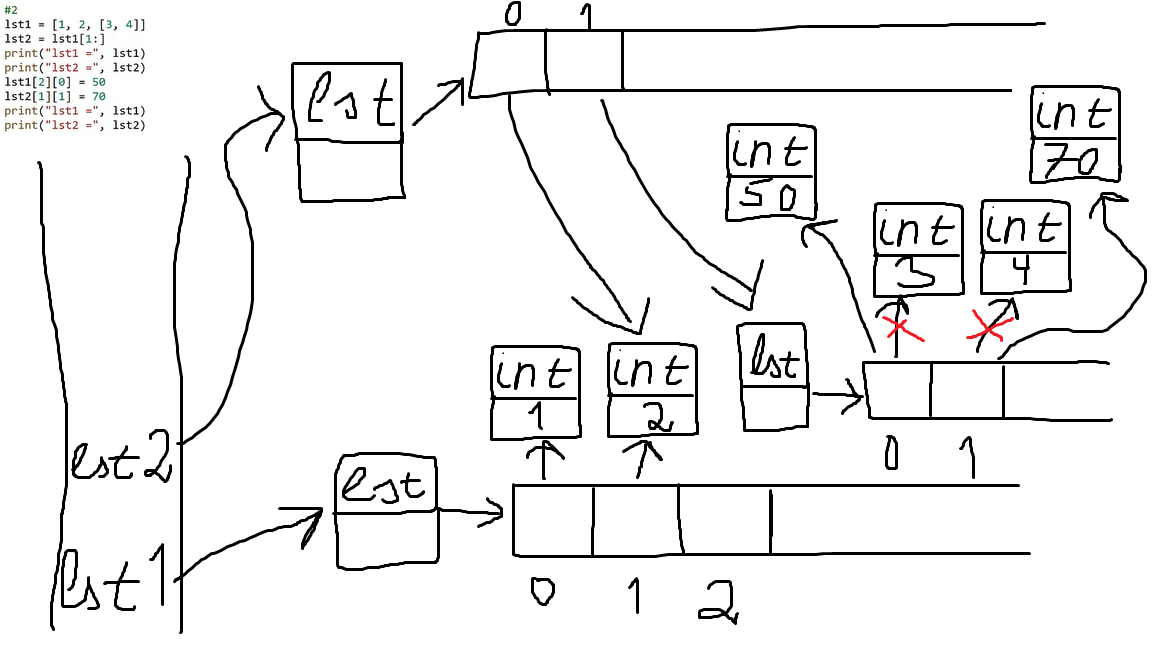 #2
lst1 = [1, 2, [3, 4]]
lst2 = lst1[1:]
print("lst1 =", lst1)
print("lst2 =", lst2)
lst1[2][0] = 50
lst2[1][1] = 70
print("lst1 =", lst1)
print("lst2 =", lst2)
0 1
lst
int
70
int
50
int
3
int
4
int
1
int
2
lst
0 1
lst2
lst
lst1
0 1 2